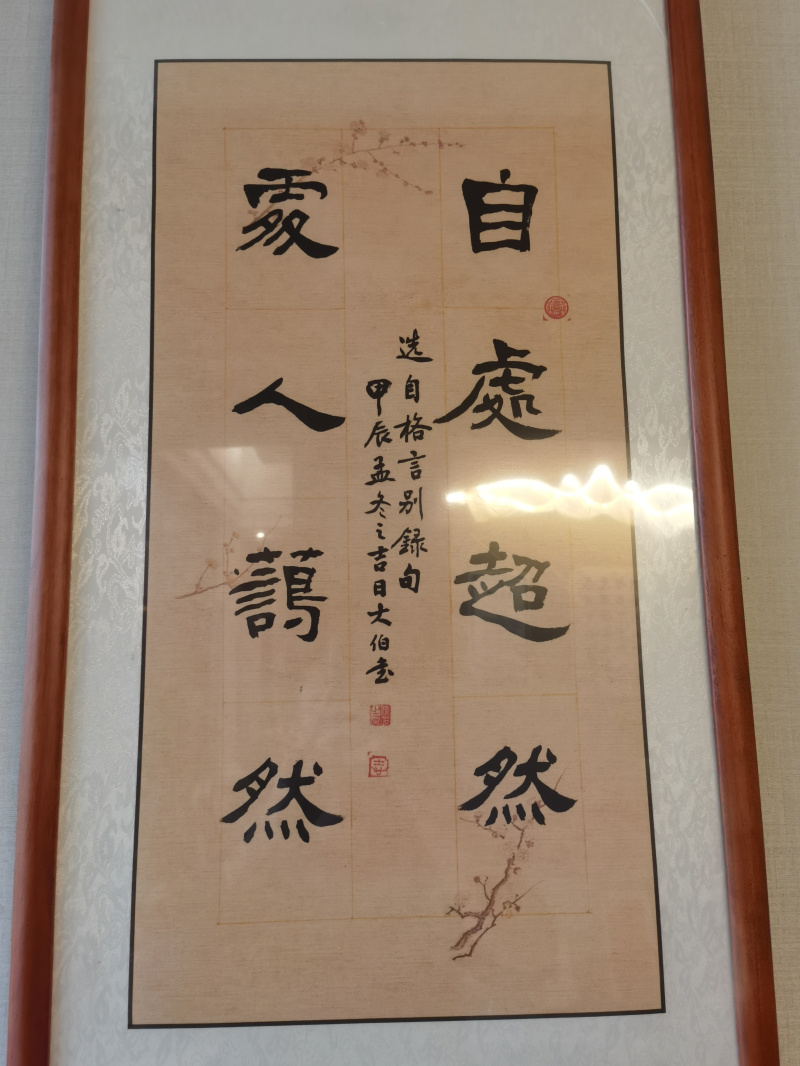 自處超然
选自格言别録句
甲辰孟冬之吉日大伯
處人藹然